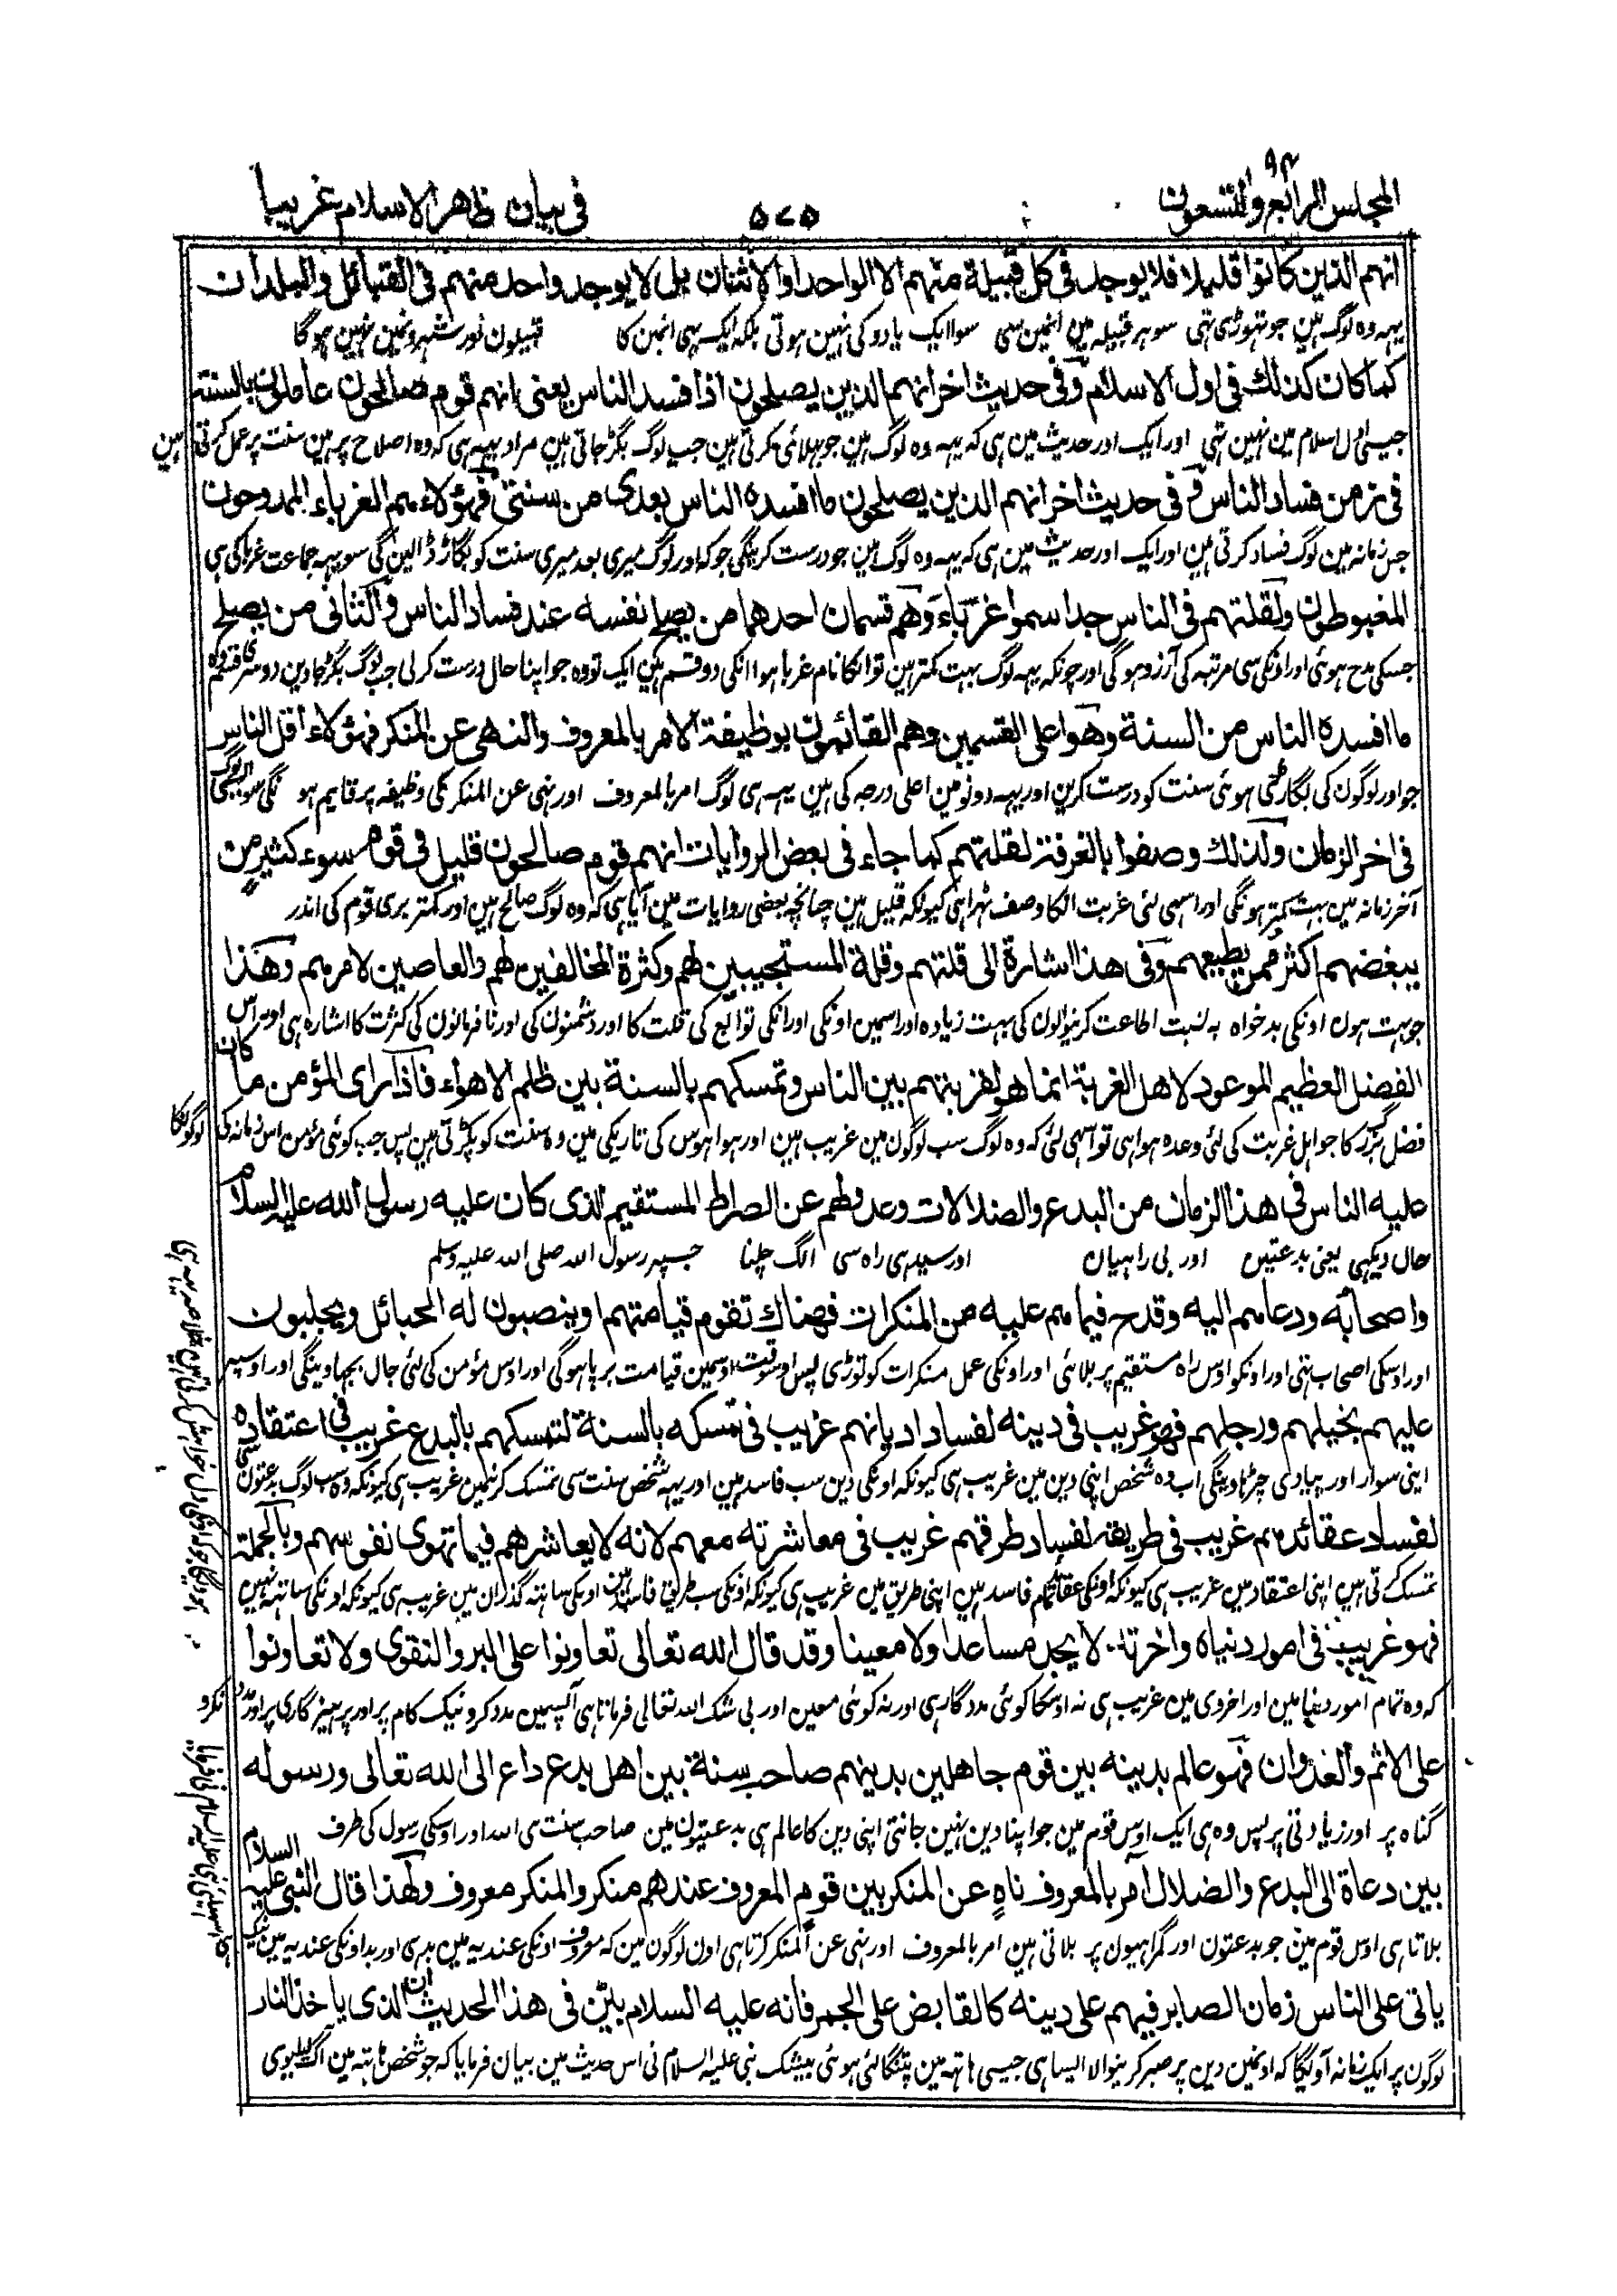 المجلس الرابع والتسعون ٩٤
٥٧٥
فى بيان ظاهر الاسلام غريبا
انهم الذين كانوا قليلا فلا يوجد فى كل قبيلة منهم الا الواحد او الاثنان بل لا يوجد واحد منهم فى القبائل والبلدان
یہہ وہ لوگ ہین جو تہوڑی تہی سو ہر قبیلہ مین انمین سی سوا ایک یا دو کی نہین ہوتی بلکہ ایک بہی انمین کا قبیلون اور شہرونمین نہین ہو گا
كما كان كذلك فى اول الاسلام وفى حديث اخر انهم الذين يصلحون اذا فسد الناس يعنى انهم قوم صالحون عاملون بالسنة
جیسی اول اسلام مین نہین تہی اور ایک اور حدیث مین ہی کہ یہہ وہ لوگ ہین جو بہلائی کرتی ہین جب لوگ بگڑ جاتی ہین مراد یہہ ہی کہ وہ اصلاح پر ہین سنت پر عمل کرتی ہین
فى زمن فساد الناس وفى حديث اخر انهم الذين يصلحون ما افسده الناس بعدى من سنتى فهؤلاء هم الغرباء الممدوحون
جس زمانہ مین لوگ فساد کرتی ہین اور ایک اور حدیث مین ہی کہ یہہ وہ لوگ ہین جو درست کرینگی جو کہ اور لوگ میری بعد میری سنت کو بگاڑ ڈالین گی سو یہہ جماعت غربا کی ہی
المغبوطون ولقلتهم فى الناس جدا سموا غرباء وهم قسمان احدهما من يصلح نفسه عند فساد الناس والثانى من يصلح
جسکی مدح ہوئی اور اونکی سی مرتبہ کی آرزو ہو گی اور چونکہ یہہ لوگ بہت کمتر ہین تو انکا نام غربا ہوا انکی دو قسم ہین ایک تو وہ جو اپنا حال درست کر لی جب لوگ بگڑ جاوین دوسری قسم وہ
ما افسده الناس من السنة وهو اعلى القسمين وهم القائمون بوظيفة الامر بالمعروف والنهى عن المنكر فهؤلاء اقل الناس
جو اور لوگون کی بگاڑی ہوئی سنت کو درست کرین اور یہہ دونومین اعلی درجہ کی ہین یہہ ہی لوگ امر بالمعروف اور نہی عن المنکر کی وظیفہ پر قایم ہو نگی سو ایسی لوگ
فى اخر الزمان ولذلك وصفوا بالغربة لقلتهم كما جاء فى بعض الروايات انهم قوم صالحون قليل فى قوم سوء كثير من
آخر زمانہ مین بہت کمتر ہونگی اور اسہی لئی غربت انکا وصف ٹہرا ہی کیونکہ قلیل ہین چنانچہ بعضی روایات مین آیا ہی کہ وہ لوگ صالح ہین اور کمتر بری قوم کی اندر
يبغضهم اكثر ممن يطيعهم وفى هذا اشارة الى قلتهم وقلة المستجيبين لهم وكثرة المخالفين لهم والعاصين لامرهم وهذا
جو بہت ہون اونکی بدخواہ بہ نسبت اطاعت کرنیوالون کی بہت زیادہ اور اسمین اونکی اور انکی توابع کی قلت کا اور دشمنون کی اور نافرمانون کی کثرت کا اشارہ ہی اور اس
الفضل العظيم الموعود لاهل الغربة انما هو لغربتهم بين الناس وتمسكهم بالسنة بين ظلم الاهواء فاذا راى المؤمن ما كان
فضل بزرگ کا جو اہل غربت کی لئی وعدہ ہوا ہی تو اسہی لئی کہ وہ لوگ سب لوگون مین غریب ہین اور ہوا ہوس کی تاریکی مین وہ سنت کو پکڑتی ہین پس جب کوئی مؤمن اس زمانہ کی لوگونکا
عليه الناس فى هذا الزمان من البدع والضلالات وعدولهم عن الصراط المستقيم الذى كان عليه رسول الله عليه السلام
حال دیکہی یعنی بدعتین اور بی راہیان اور سیدہی راہ سی الگ چلنا جسپر رسول اللہ صلی اللہ علیہ وسلم
واصحابه ودعاهم اليه وقدح فيما هم عليه من المنكرات فهناك تقوم قيامتهم وينصبون له الحبائل ويجلبون
اور اوسکی اصحاب تہی اور اونکو اوس راہ مستقیم پر بلائی اور اونکی عمل منکرات کو توڑی پس اوسوقت اوسمین قیامت برپا ہوگی اور اوس مؤمن کی لئی جال بچہاوینگی اور اوسپر
عليهم بخيلهم ورجلهم فهو غريب فى دينه لفساد اديانهم غريب فى تمسكه بالسنة لتمسكهم بالبدع غريب فى اعتقاده
اپنی سوار اور پیادی چڑہاوینگی اب وہ شخص اپنی دین مین غریب ہی کیونکہ اونکی دین سب فاسد ہین اور یہہ شخص سنت سی تمسک کرنیمین غریب ہی کیونکہ وہ سب لوگ بدعتون سی
لفساد عقائدهم غريب فى طريقه لفساد طرقهم غريب فى معاشرته معهم لانه لا يعاشرهم فيما تهوى نفوسهم وبالجملة
تمسک کرتی ہین اپنی اعتقاد مین غریب ہی کیونکہ اونکی عقائد تمام فاسد ہین اپنی طریق مین غریب ہی کیونکہ اونکی سب طریق فاسد ہین اونکی ساتہہ گذران مین غریب ہی کیونکہ اونکی ساتہہ نہین
فهو غريب فى امور دنياه واخرته لا يجد مساعدا ولا معينا وقد قال الله تعالى تعاونوا على البر والتقوى ولا تعاونوا
کہ وہ تمام امور دنیا مین اور اخروی مین غریب ہی نہ اوسکا کوئی مددگار ہی اور نہ کوئی معین اور بی شک اللہ تعالی فرماتا ہی آپسمین مدد کرو نیک کام پر اور پرہیزگاری پر اور مدد نکرو
على الاثم والعدوان فهو عالم بدينه بين قوم جاهلين بدينهم صاحب سنة بين اهل بدع داع الى الله تعالى ورسوله
گناہ پر اور زیادتی پر پس وہ ہی ایک اوس قوم مین جو اپنا دین نہین جانتی اپنی دین کا عالم ہی بدعتیون مین صاحب سنت ہی اللہ اور اوسکی رسول کی طرف
بين دعاة الى البدع والضلال امر بالمعروف ناهٍ عن المنكر بين قوم المعروف عندهم منكر والمنكر معروف ولهذا قال النبى عليه السلام
بلاتا ہی اوس قوم مین جو بدعتون اور گمراہیون پر بلاتی ہین امر بالمعروف اور نہی عن المنکر کرتا ہی اون لوگون مین کہ معروف اونکی عندیہ مین بد ہی اور بد اونکی عندیہ مین نیک
ياتى على الناس زمان الصابر فيهم على دينه كالقابض على الجمر فانه عليه السلام بيّن فى هذا الحديث ان الذى ياخذ النار
لوگون پر ایک زمانہ آویگا کہ اونمین دین پر صبر کرنیوالا ایسا ہی جیسی ہاتہہ مین پتنگا لئی ہوئی بیشک نبی علیہ السلام نی اس حدیث مین بیان فرمایا کہ جو شخص ہاتہہ مین آگ لیوی